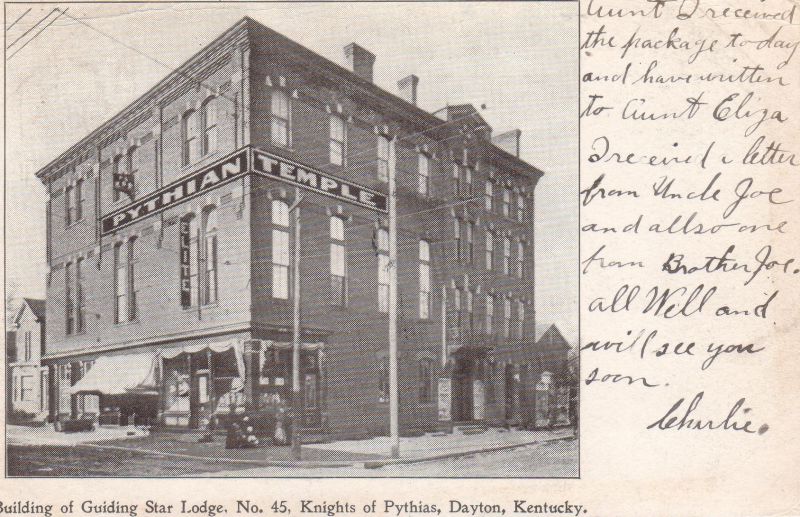 PYTHIAN TEMPLE
ELITE
Aunt I received
the package today
and have written
to Aunt Eliza
I received a letter
from Uncle Joe
and allso one
from Brother Joe.
all Well and
will see you
soon.
Charlie.
Building of Guiding Star Lodge, No. 45, Knights of Pythias, Dayton, Kentucky.